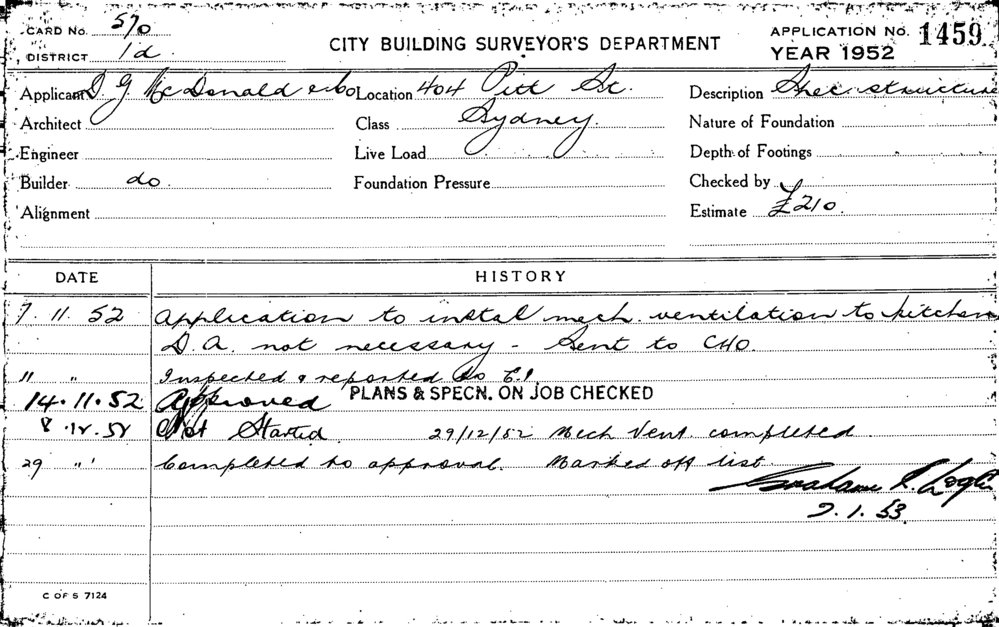 CARD No. 570
DISTRICT 1d
CITY BUILDING SURVEYOR'S DEPARTMENT
APPLICATION No. 1459
YEAR 1952
Applicant D. G McDonald & Co
Location 404 Pitt St.
Description structure
Architect
Class Sydney.
Nature of Foundation
Engineer
Live Load
Depth of Footings
Builder do.
Foundation Pressure
Checked by
Alignment
Estimate £210.
DATE HISTORY
7. 11. 52 Application to instal mech. ventilation to kitchen
D. A. not necessary - Sent to CHO.
" " Inspected & reported to
14.11.52 Approved PLANS & SPECN. ON JOB CHECKED
8.12.52 Not Started 29/12/52 Mech Vent. completed
29 " " Completed to approval. Marked off list
Grahame
7.1.53.
C OF S 7124